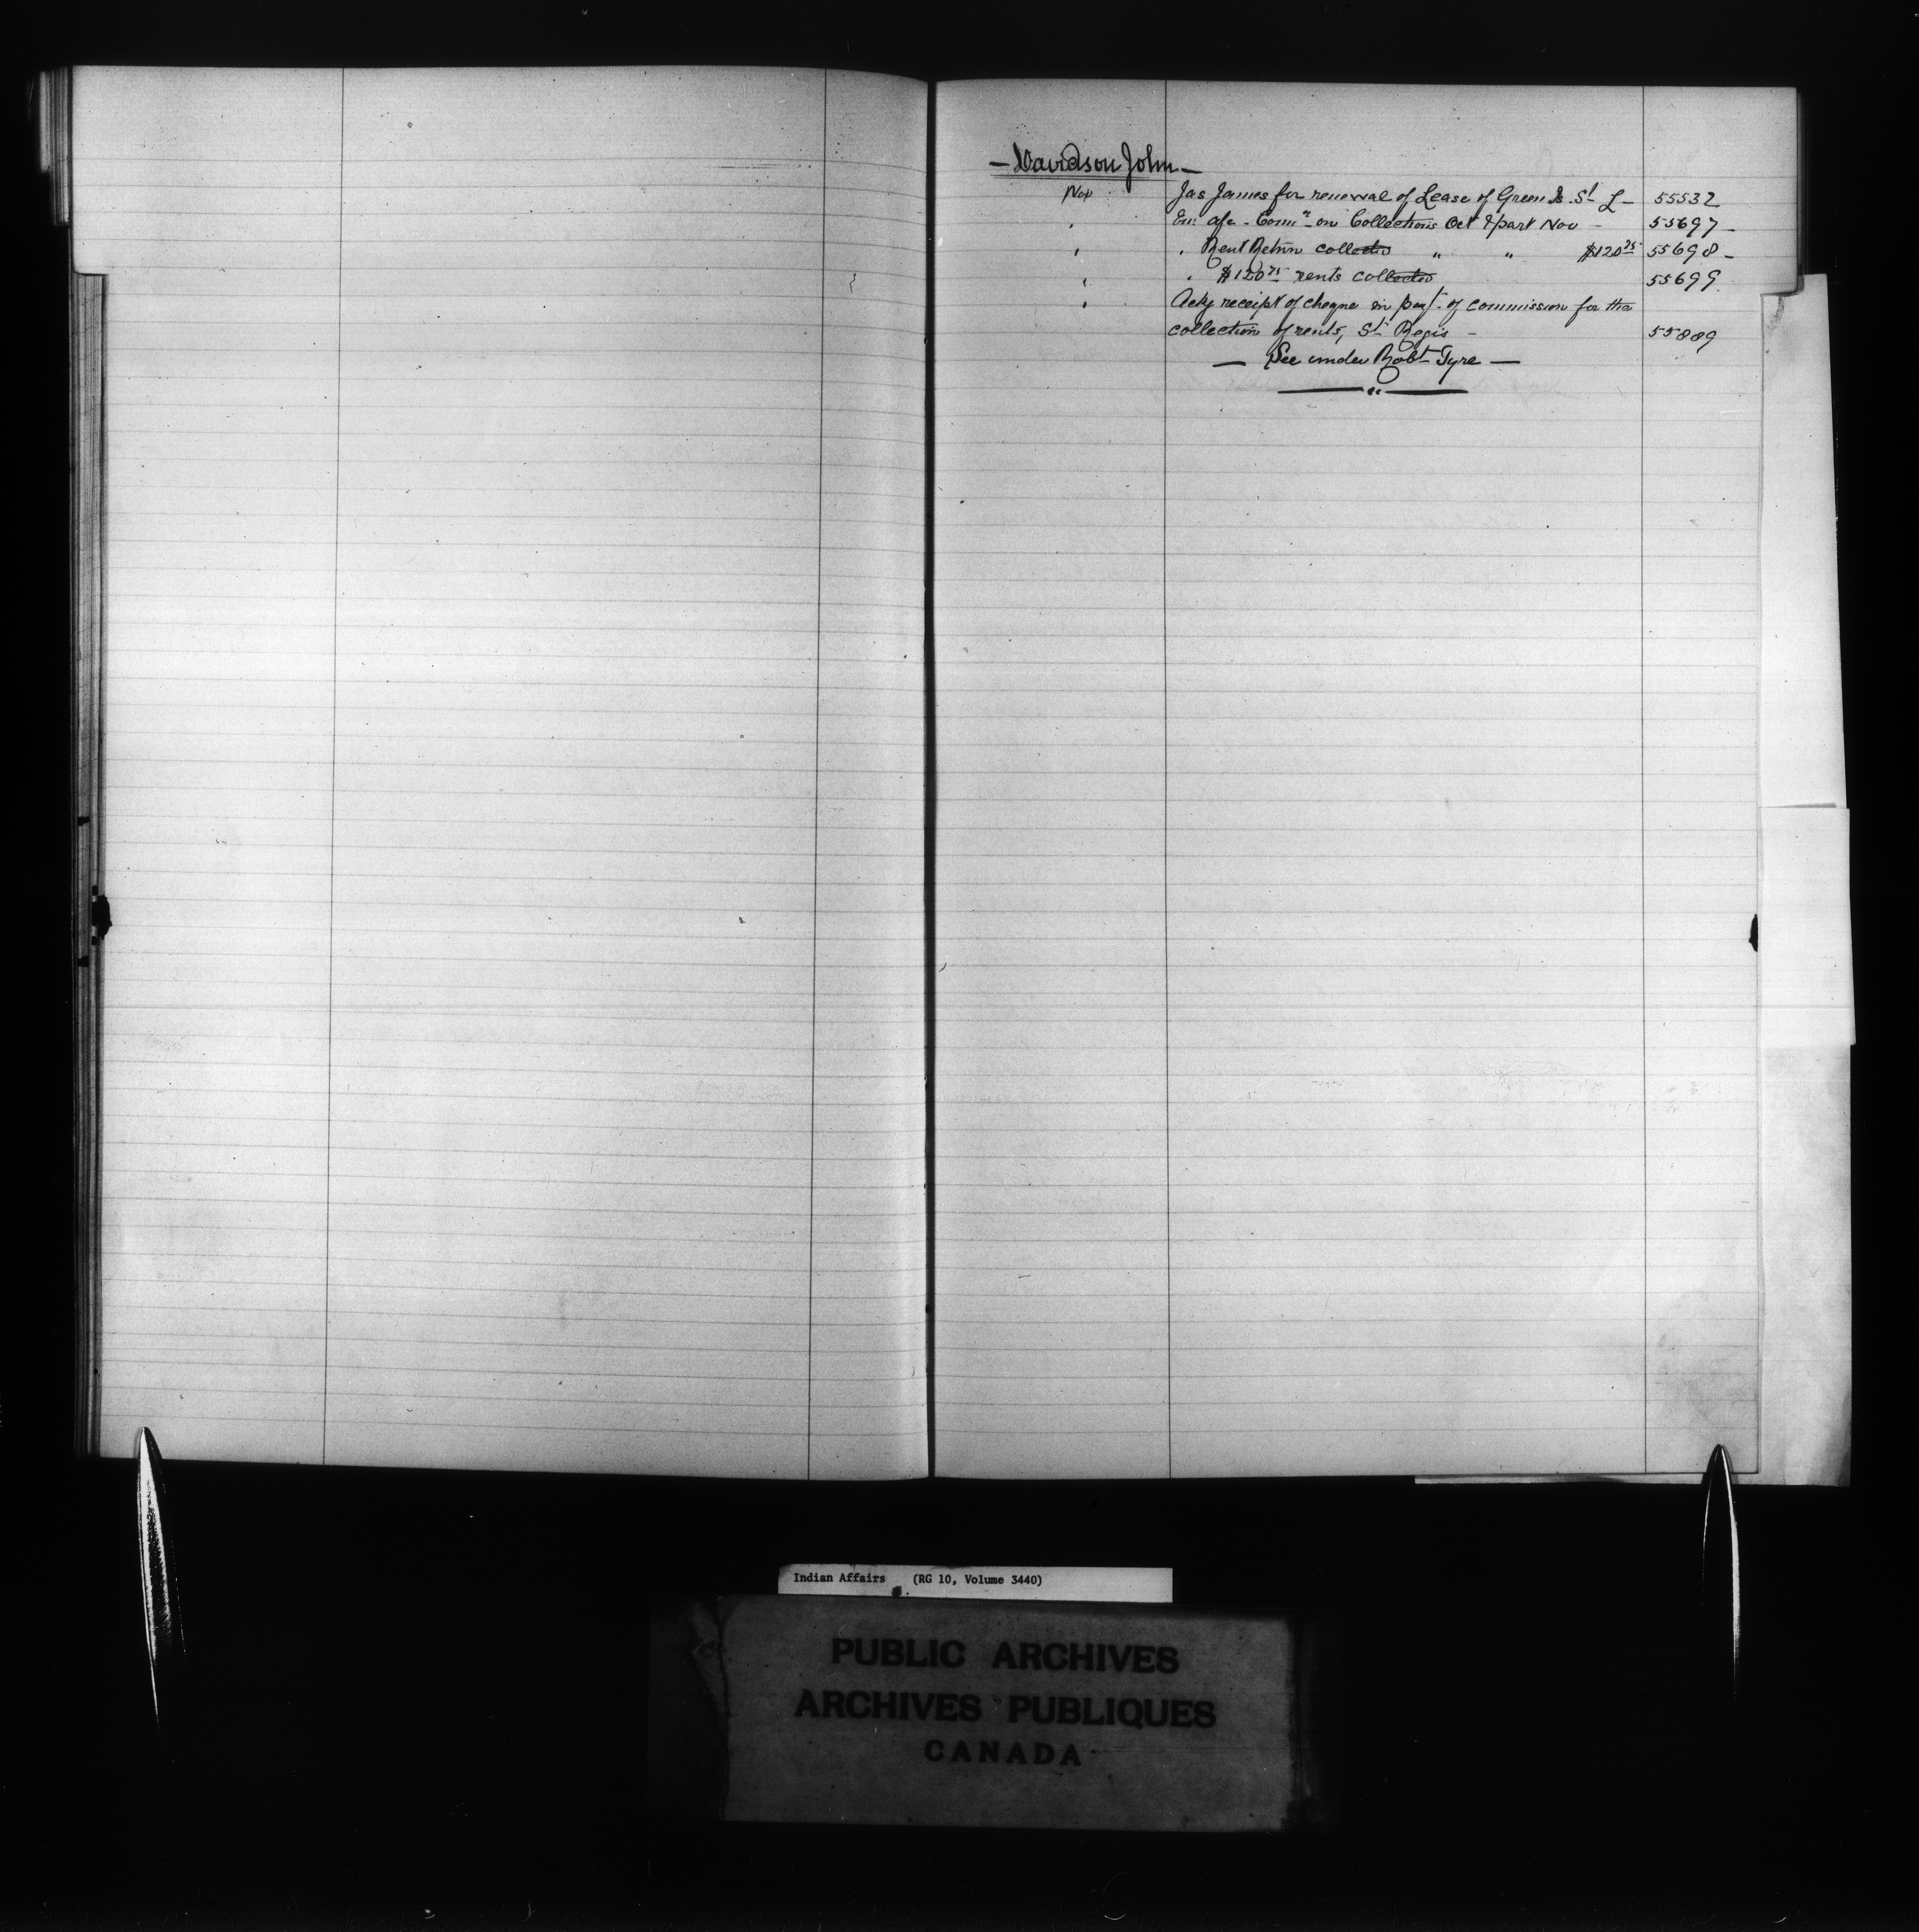 — Davidson John —
Nov Jas James for renewal of Lease of Green Is. St L — 55532
" Enc a/c - Comn on Collections Oct & part Nov — 55697 —
" " Rent Return collected " " $120 75 55698 —
" " $120 75 rents collected 55699
" Ackg receipt of cheque in payt of commission for the
collection of rents, St Regis — 55889
— See under Robt Tyre —
Indian Affairs (RG 10, Volume 3440)
PUBLIC ARCHIVES
ARCHIVES PUBLIQUES
CANADA